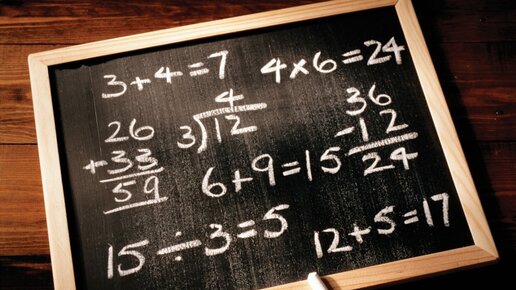 3+4=7
4×6=24
26
+33
59
4
3)12
36
-12
24
6+9=15
15÷3=5
12+5=17